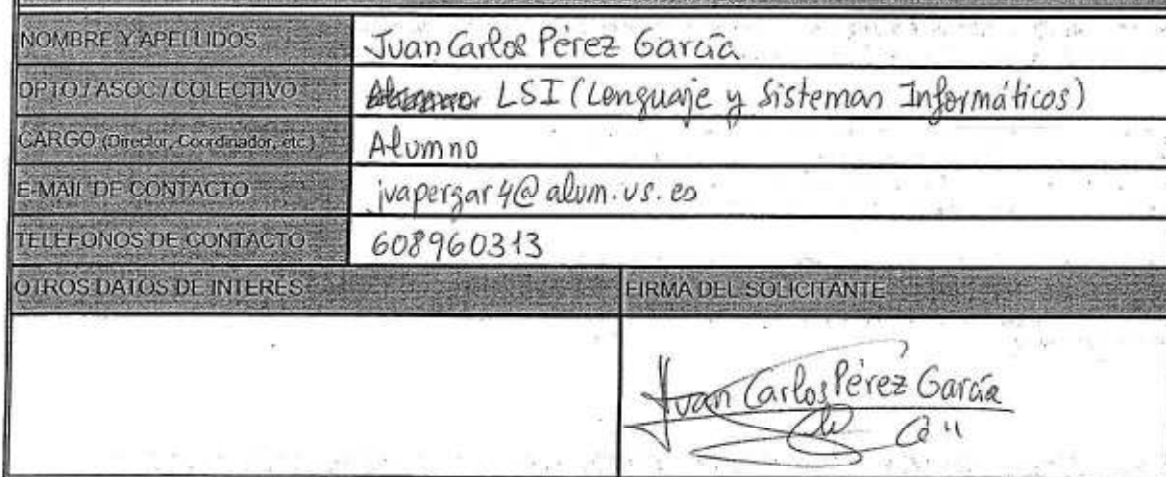 NOMBRE Y APELLIDOS Juan Carlos Pérez García
DPTO / ASOC / COLECTIVO LSI (Lenguaje y Sistemas Informáticos)
CARGO (Director, Coordinador, etc.) Alumno
E-MAIL DE CONTACTO jvapergar4@alum.us.es
TELEFONOS DE CONTACTO 608960313
OTROS DATOS DE INTERÉS FIRMA DEL SOLICITANTE
Juan Carlos Pérez García